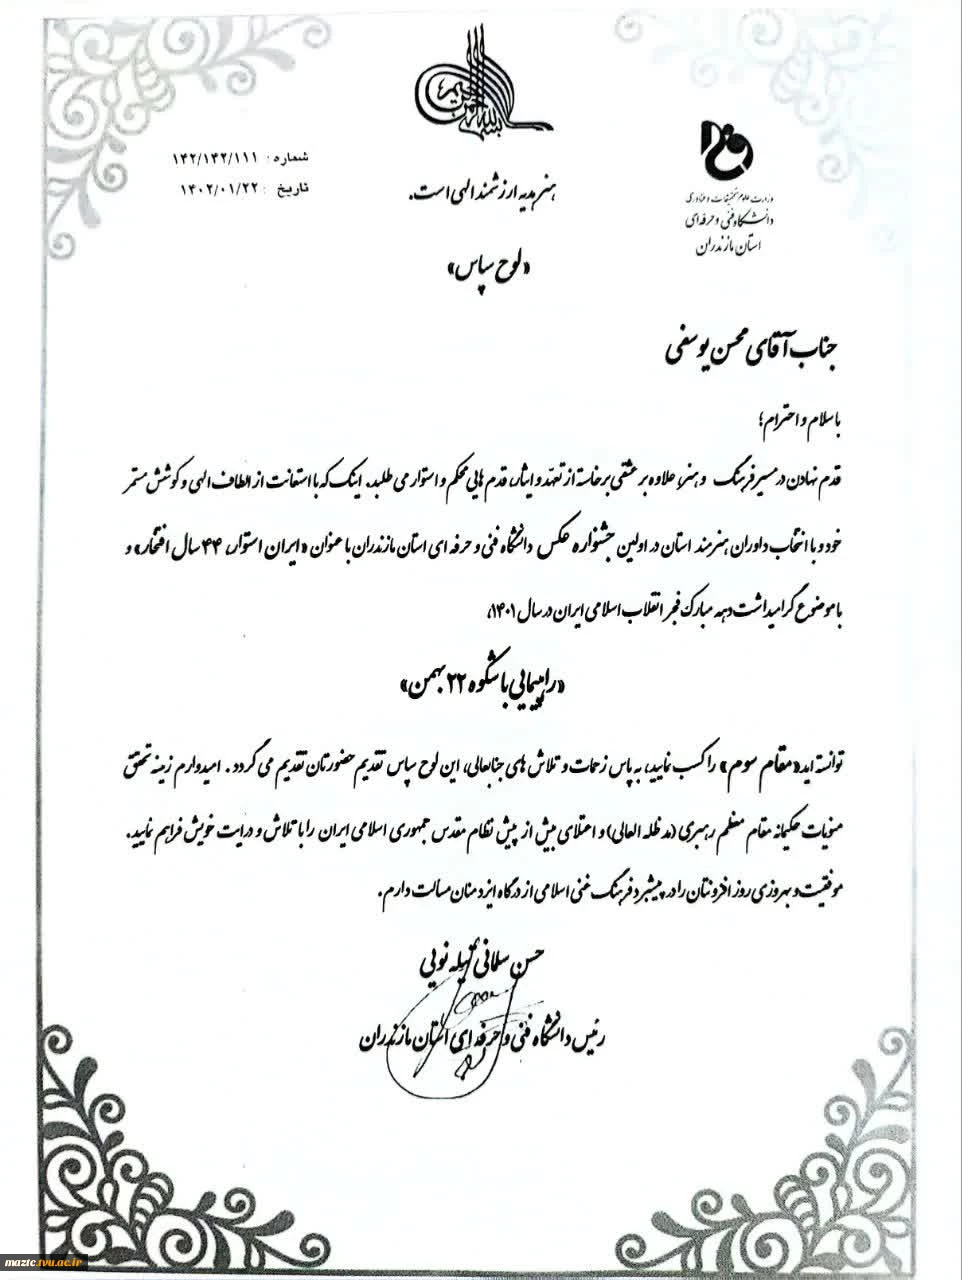 بسم الله الرحمن الرحیم
شماره: ۱۴۲/۱۴۲/۱۱۱
تاریخ: ۱۴۰۲/۰۱/۲۲
هنر هدیه ارزشمند الهی است.
وزارت علوم تحقیقات و فناوری
دانشگاه فنی و حرفه ای
استان مازندران
«لوح سپاس»
جناب آقای محسن یوسفی
با سلام و احترام؛
قدم نهادن در مسیر فرهنگ و هنر، علاوه بر عشقی برخاسته از تعهد و ایثار، قدم هایی محکم و استوار می طلبد. اینک که با استعانت از الطاف الهی و کوشش مستمر
خود و با انتخاب داوران هنرمند استان در اولین جشنواره عکس دانشگاه فنی و حرفه ای استان مازندران با عنوان «ایران استوار، ۴۴ سال افتخار» و
با موضوع گرامیداشت دهه مبارک فجر انقلاب اسلامی ایران در سال ۱۴۰۱،
«راهپیمایی باشکوه ۲۲ بهمن»
توانسته اید «مقام سوم» را کسب نمایید، به پاس زحمات و تلاش های جنابعالی، این لوح سپاس تقدیم حضورتان تقدیم می گردد. امیدوارم زمینه تحقق
منویات حکیمانه مقام معظم رهبری (مد ظله العالی) و اعتلای بیش از پیش نظام مقدس جمهوری اسلامی ایران را با تلاش و درایت خویش فراهم نمایید.
موفقیت و بهروزی روز افزونتان را در پیشبرد فرهنگ غنی اسلامی از درگاه ایزد منان مسالت دارم.
حسن سلمانی نوایی
رئیس دانشگاه فنی و حرفه ای استان مازندران
maztc.tvu.ac.ir